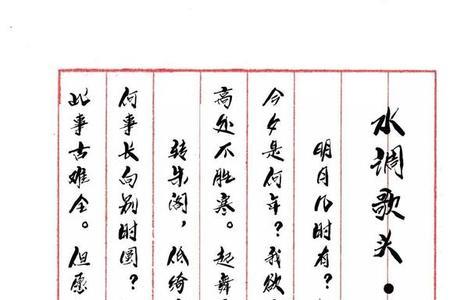 水调歌头·
明月几时有？
今夕是何年？我欲
高处不胜寒。起舞
转朱阁，低绮
何事长向别时圆？
此事古难全。但愿